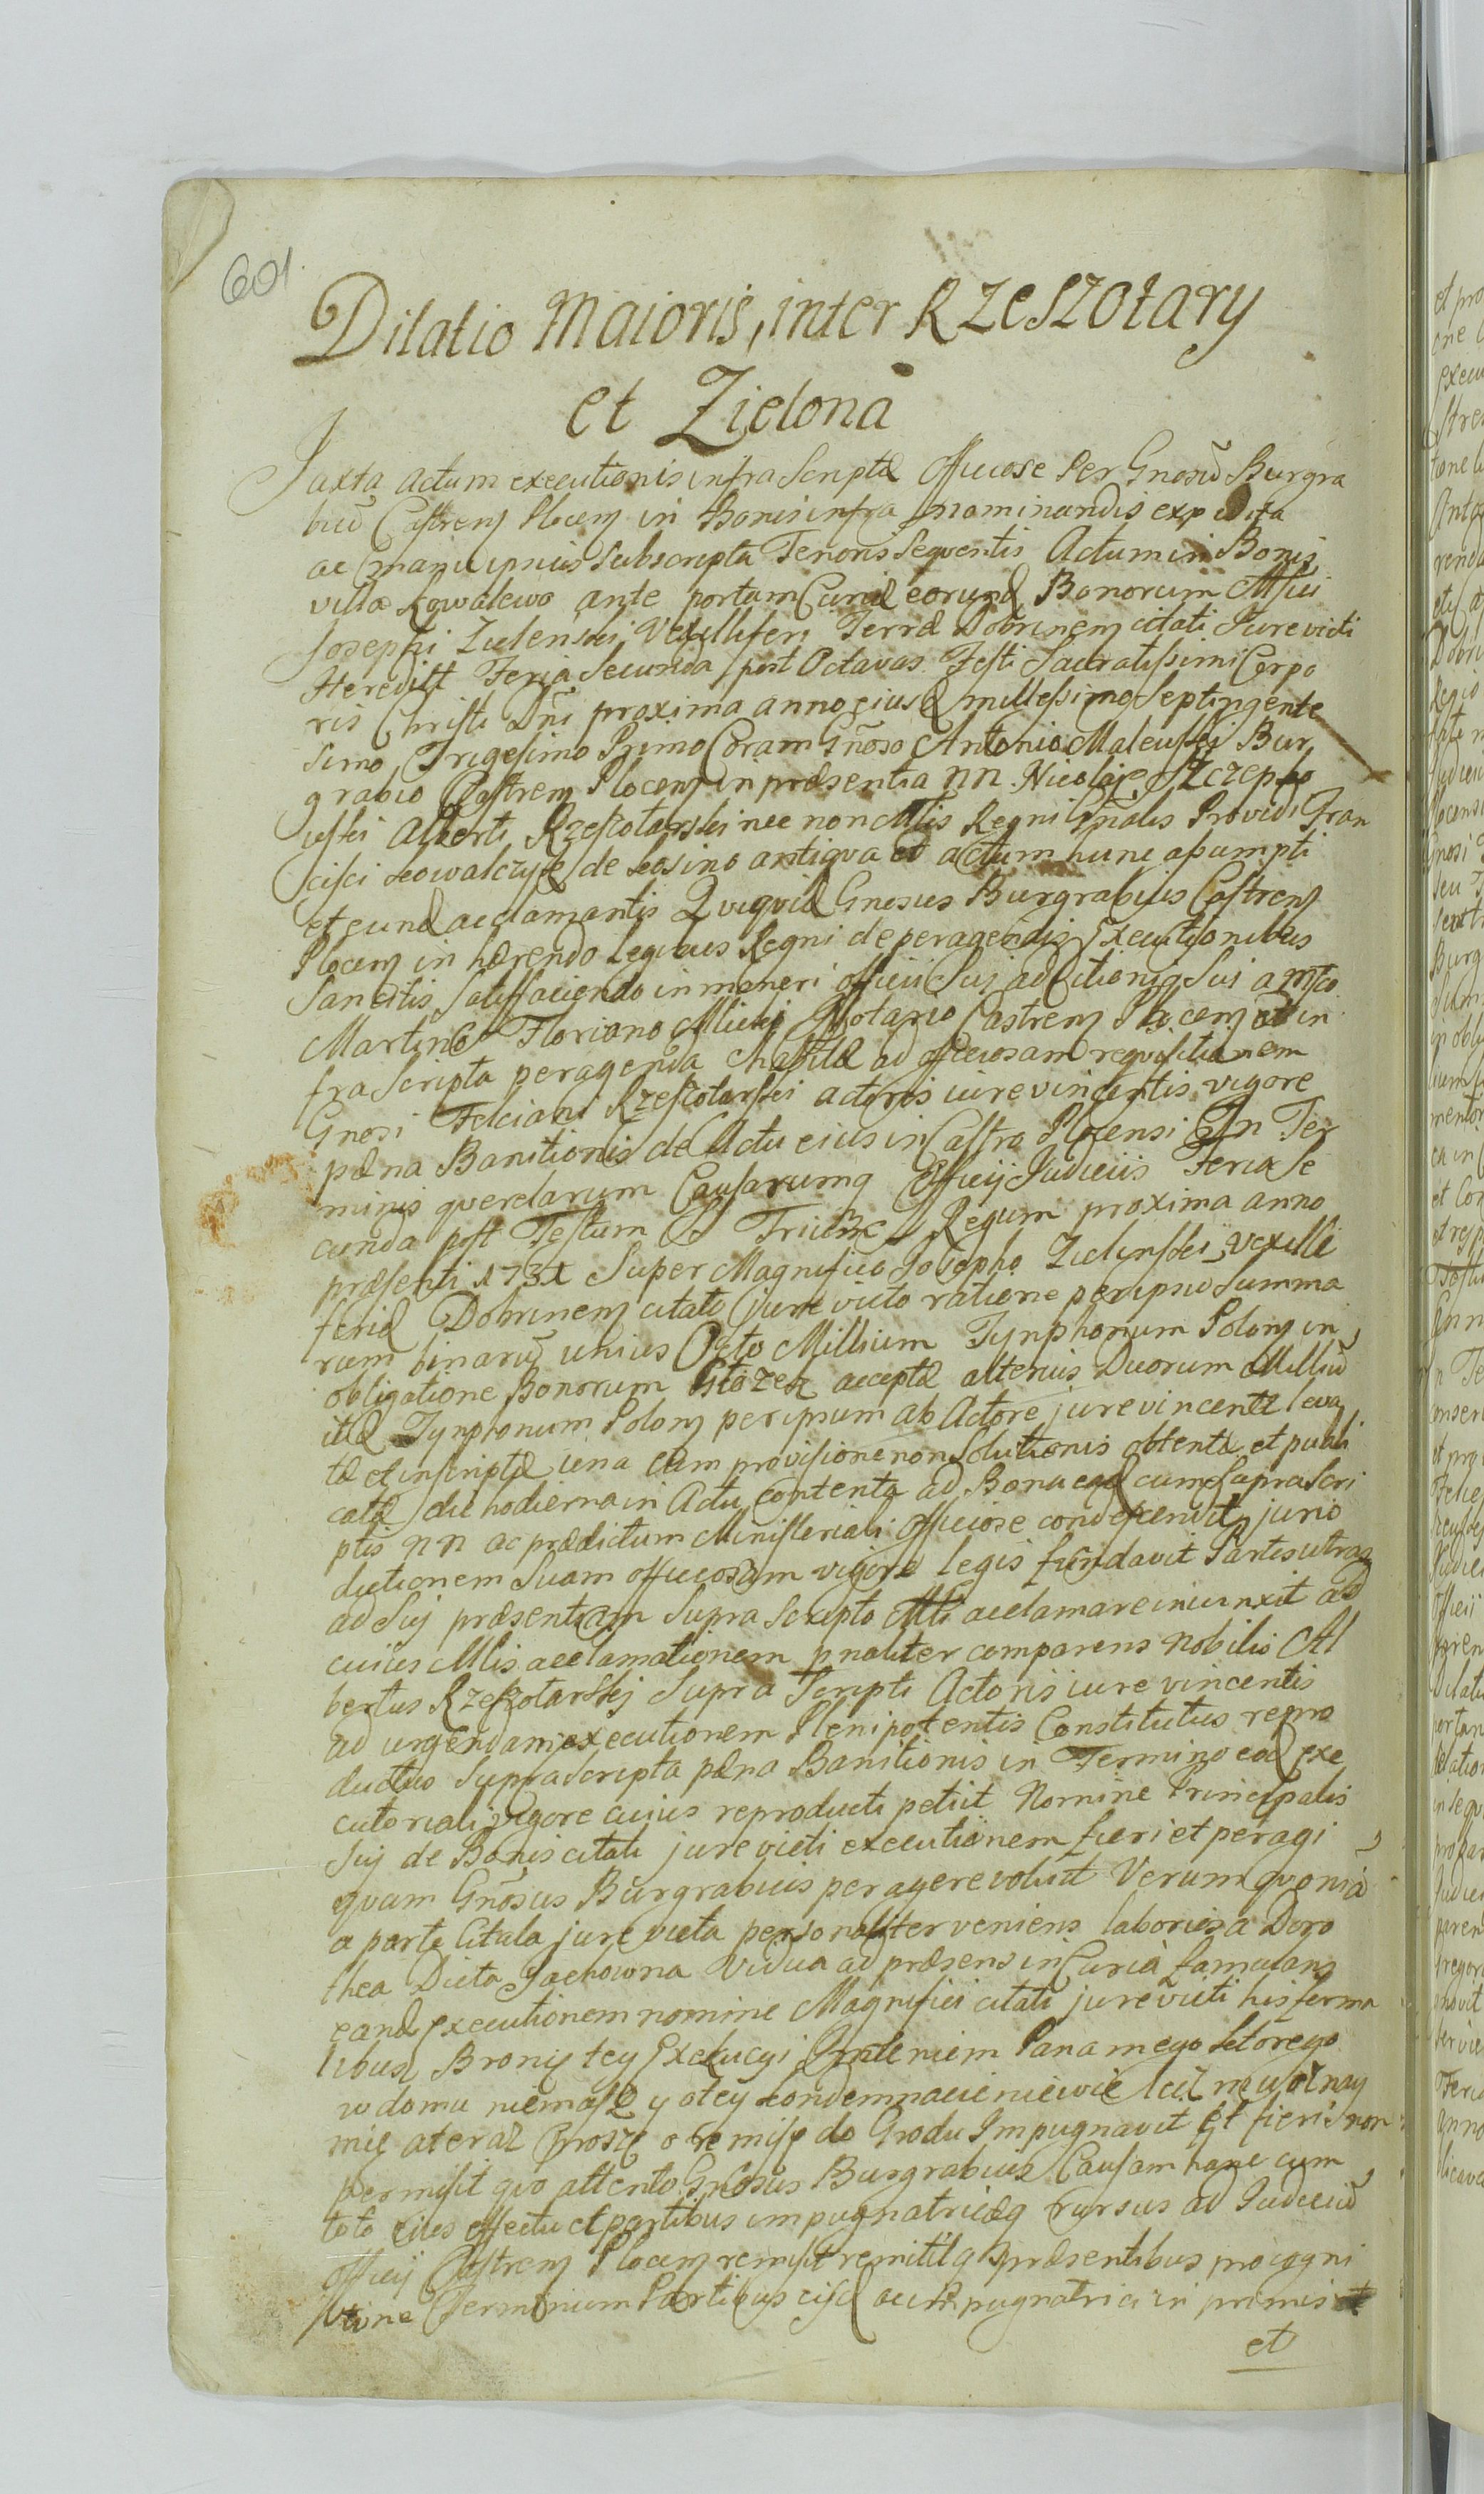 601
Dilatio Maioris, inter Rzeszotary
et Zielona
Juxta Actum executionis infra Scriptæ Officiose Per Gnosũ Burgra
biũ Castrens Plocens in Bonis infra nominandis expedita
ac manu ipsius Subscripta Tenoris Sequentis Actum in Bonis
villæ Kowalewo ante portam Curiæ eorund Bonorum Mfici
Josephi Zielenski Vexilliferi Terræ Dobrinens citati Jurevicti
Heredist Feria Secunda post Octavas Festi Sacratissimi Corpo
ris Christi Dñi proxima anno eiusd millesimo Septingente
simo Trigesimo Primo Coram Gñoso Antonio Maleuski Bur
grabio Castrens Plocens in præsentia nn. Nicolai Szczepko
uski Alberti Rzeszotarski nec non Mtlis Regni Gñalis Providi Fran
cisci Kowalczyk de Kosino antiqva ad actum hunc assumpti
et eund acclamantis Quiqvid Gnosus Burgrabius Castrens
Plocens in hærendo legibus Regni de peragendis Executionibus
Sancitis Satisfaciendo in muneri officii Sui ad ditionis Sui a Mfco
Martino Floriano Mlicki Notario Castrens Plocens ad in
fra Scripta peragenda habitæ ad officiosam reqvisitionem
Gnosi Feliciani Rzeszotarski actoris iurevincentis vigore
pæna Banitionis de Actu eius in Castro Plocensi In Ter
minis qverelarum Causarumq Officij Judiciis Feria Se
cunda post Festum SS Trium Regum proxima anno
præsenti 1731 Super Magnifico Josepho Zielinski, Vexilli
feriæ Dobrinens citato jure victo ratione per ipsũ Summa
rum binarũ unius Octo Millium Tynphonum Polon in
obligatione Bonorum acceptæ alterius Duorum Milliũ
itd Tynphonum Polon per ipsum ab Actore jurevincente leva
tæ et inscriptæ una cum provisione non Solutionis obtentæ et publi
catæ die hodierna in Actu contenta ad Bona ead cum Supra Scri
ptis nn ac prædictum Ministeriali Officiose condescendit juris
dictionem Suam officiosam vigore legis fundavit Partis utraq
ad Sui præsentiam Supra Scripto Mli acclamare iniunxit ad
cuius Mlis acclamationem pnaliter comparens Nobilis Al
bertus Rzeszotarski Supra Scripti Actoris iure vincentis
ad urgendam executionem Plenipotentis Constitutus repro
ductus Suprascripta pæna Banitionis in Termino eod exe
cutoriali vigore cuius reproducti petiit Nomine Principalis
Sui de Bonis citati jure victi executionem fieri et peragi
qvam Gñosus Burgrabius peragere voluit Verum qvoniã
a parte Citata jure victa personaliter veniens laboriosa Doro
thea Dicta Jachowna Vidua ad præsens in Curia famulans
eand executionem nomine Magnifici citati jure victi his forma
libus Bronię tey Exekucyi Imieniem Pana mego ktorego
w domu niemasz y o tey kondemnacie niewie
mię a teraz proszę o remisę do Grodu Impugnavit Et fieri non
permisit qvo attento Gnosus Burgrabius Causam hanc cum
toto eius effectu et partibus impugnatriceq rursus ad Judiciũ
officij Castrens Plocens remisit remititq præsentibus pro cogni
tione Terminum Partibus eisd ac impugnatrici in primis
et